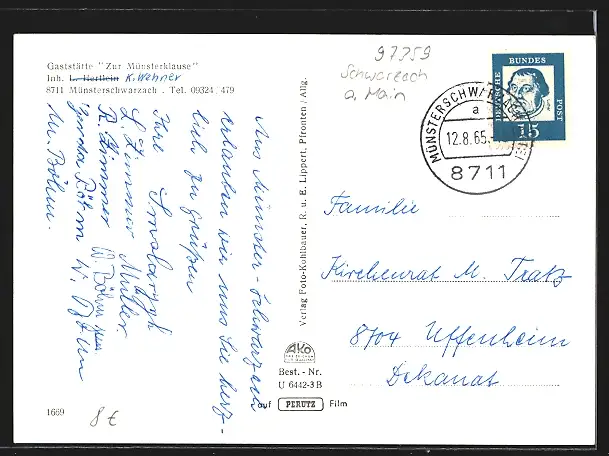 Gaststätte "Zur Münsterklause"
Inh. L. Härtlein K. Wehner
8711 Münsterschwarzach . Tel. 09324 479
Aus Münster-Schwarzach
erlauben wir uns Sie herz-
lich zu grüßen
Ihre
L. Zimmer Müller
R. Zimmer W. Böhm jun.
Gerda Böhm W. Böhm
Mr. Böhm.
1669
8 €
Verlag Foto-Kohlbauer, R. u. E. Lippert, Pfronten / Allg.
AKO
Best. - Nr.
U 6442-3 B
auf PERUTZ Film
97359
Schwarzach
a. Main
DEUTSCHE BUNDES POST
15
MÜNSTERSCHWARZACH
a
12.8.65
8711
Familie
Kirchenrat M. Tratz
8704 Uffenheim
Dekanat